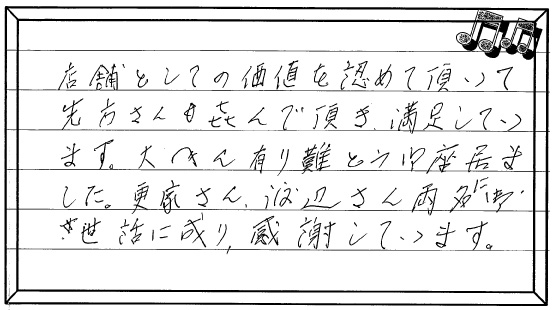 店舗としての価値を認めて頂いて
先方さんも㐂んで頂き、満足してい
ます。大へん有り難とう御座居ま
した。更家さん、渡辺さん両名に御
世話に成り、感謝しています。